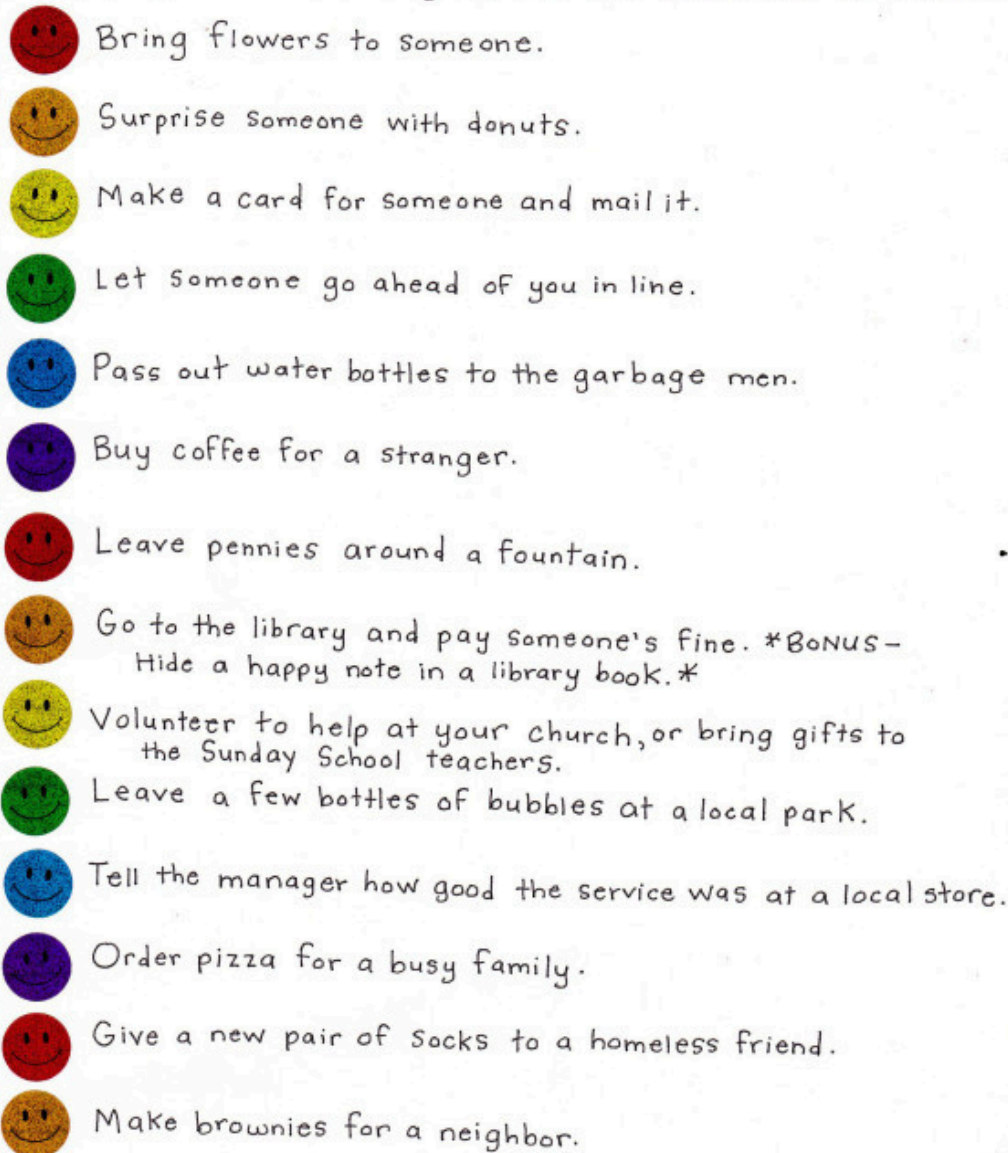 Bring flowers to someone.
Surprise someone with donuts.
Make a card for someone and mail it.
Let someone go ahead of you in line.
Pass out water bottles to the garbage men.
Buy coffee for a stranger.
Leave pennies around a fountain.
Go to the library and pay someone's fine. *BONUS-
Hide a happy note in a library book.*
Volunteer to help at your church, or bring gifts to
the Sunday School teachers.
Leave a few bottles of bubbles at a local park.
Tell the manager how good the service was at a local store.
Order pizza for a busy family.
Give a new pair of socks to a homeless friend.
Make brownies for a neighbor.